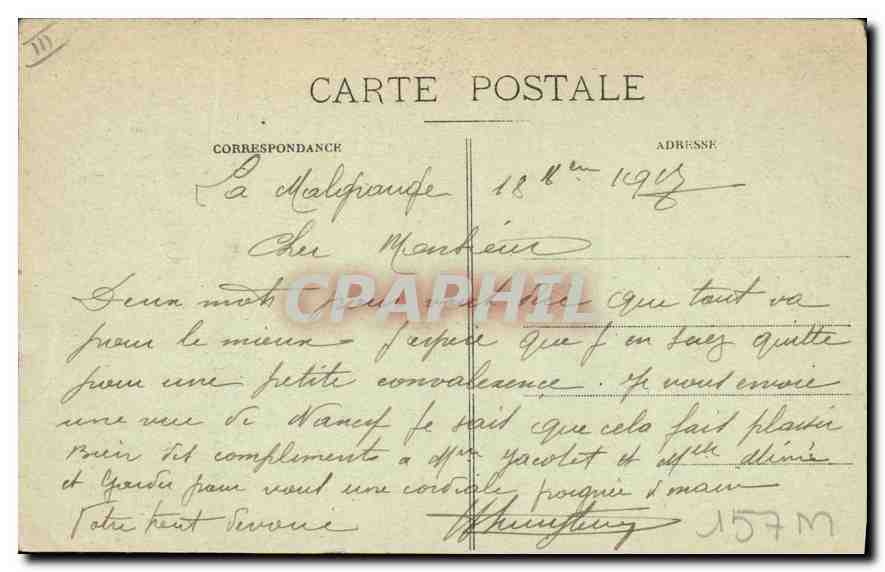 CARTE POSTALE
CORRESPONDANCE
ADRESSE
La Malgrange 18 1915
Cher Monsieur
Deux mots pour vous dire que tout va
pour le mieux j'espère que j'en serez quitte
pour une petite convalexence. Je vous envoie
une vue de Nancy Je sait que cela fait plaisir
Bien des compliments a Mme Jacolet et Melle
et Gardez pour vous une cordiale poignée d main
Votre tout devoué
157M
CPAPHIL